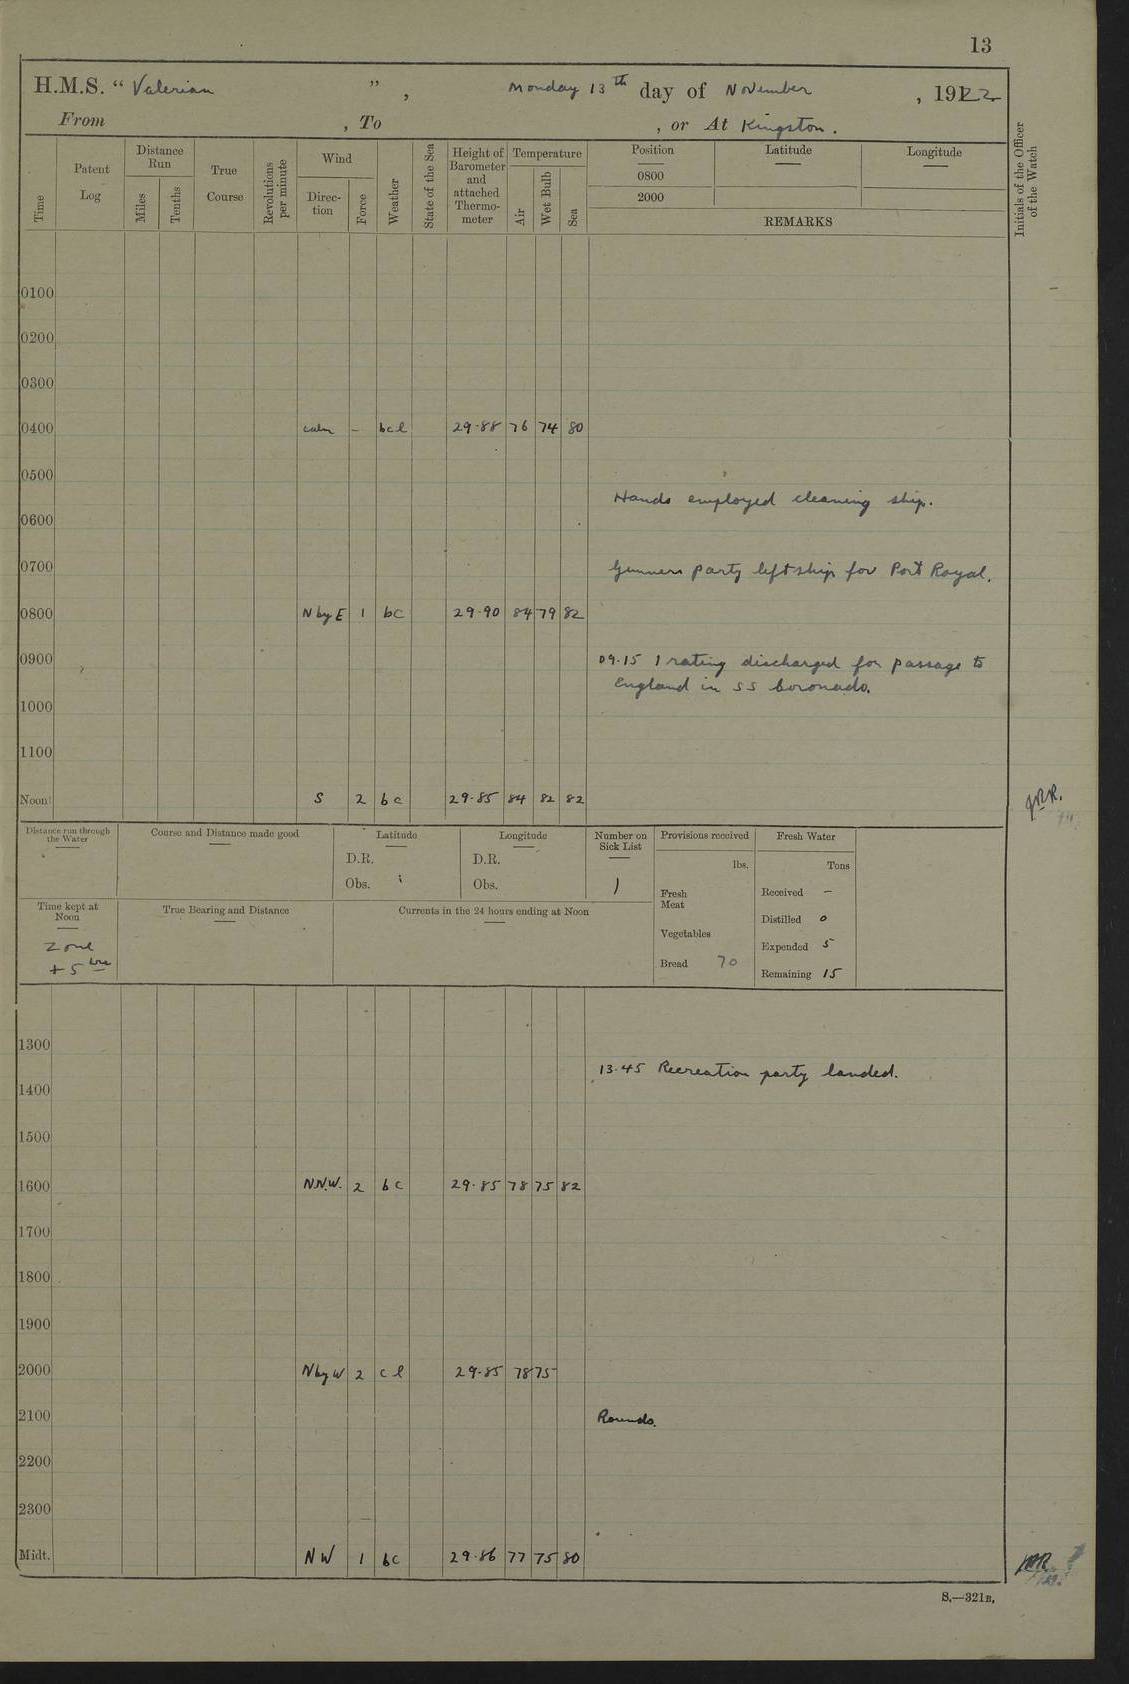 13
H.M.S. “ Valerian ” , Monday 13th day of November , 1922
From , To , or At Kingston.
Time
Patent Log
Distance Run
Miles
Tenths
True Course
Revolutions per minute
Wind
Direction
Force
Weather
State of the Sea
Height of Barometer and attached Thermometer
Temperature
Air
Wet Bulb
Sea
Position
Latitude
Longitude
0800
2000
REMARKS
Initials of the Officer of the Watch
0100
0200
0300
0400 calm – bcl 29·88 76 74 80
0500
Hands employed cleaning ship.
0600
0700 Gunners party left ship for Port Royal.
0800 N by E 1 bc 29·90 84 79 82
0900 09·15 1 rating discharged for passage to
England in SS Coronado.
1000
1100
Noon S 2 bc 29·85 84 82 82
Distance run through the Water
Course and Distance made good
Latitude
D.R.
Obs.
Longitude
D.R.
Obs.
Number on Sick List
1
Provisions received
lbs.
Fresh Meat
Vegetables
Bread 70
Fresh Water
Tons
Received –
Distilled 0
Expended 5
Remaining 15
Time kept at Noon
Zone
+ 5 hrs
True Bearing and Distance
Currents in the 24 hours ending at Noon
1300
13·45 Recreation party landed.
1400
1500
1600 N.N.W. 2 bc 29·85 78 75 82
1700
1800
1900
2000 N by W 2 cl 29·85 78 75
2100 Rounds.
2200
2300
Midt. NW 1 bc 29·86 77 75 80
S.—321B.